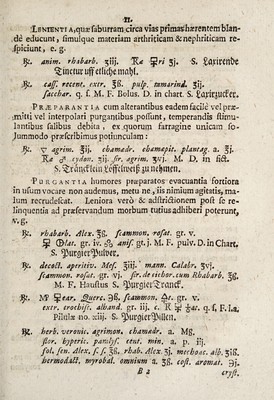 11.
LENIENTIA, quæ saburram circa vias primas hærentem blan-
dè educunt, simulque materiam arthriticam & nephriticam re-
spiciunt, e. g.
℞. anim. rhabarb. ʒiij. ʒj. S. Laxirende
Tinctur uff etliche mahl.
℞. cass. recent. extr. ℥ß. pulp. tamarind. ʒij.
sacchar. q. s. M. F. Bolus. D. in chart. S. Laxirzucker.
PRÆPARANTIA cum alterantibus eadem facilè vel præ-
mitti vel interpolari purgantibus possunt, temperandis stimu-
lantibus salibus debita, ex quorum farragine unicam so-
lummodo præscribimus potiunculam:
℞. agrim. ʒij. chamædr. chamæpit. plantag. a. ʒj.
cydon. ʒij. sir. agrim. ʒvj. M. D. in fict.
S. Träncklein Löffelweiß zu nehmen.
PURGANTIA humores præparatos evacuantia fortiora
in usum vocare non audemus, metu ne, iis nimium agitatis, ma-
lum recrudescat. Leniora verò & adstrictionem post se re-
linquentia ad præservandum morbum tutius adhiberi poterunt,
v. g.
℞. rhabarb. Alex. ʒß. scammon. rosat. gr. v.
gr. iv. anis. gt. j. M. F. pulv. D. in Chart.
S. Purgier Pulver.
℞. decoct. aperitiv. Mes. ℥iij. mann. Calabr. ʒvj.
scammon. rosat. gr. vj. sir. de cichor. cum Rhabarb. ℥ß.
M. F. Haustus S. Purgier Tranck.
℞. Querc. ℈ß. scammon. gr. v.
extr. crochist. alhand. gr. iij. c. q. s. F. l. a.
Pilulæ no. xiij. S. Purgier Pillen.
℞. herb. veronic. agrimon. chamædr. a. Mß.
flor. hyperic. paralys. cent. min. a. p. iij.
fol. sen. Alex. s. s. ℥ß. rhab. Alex. ʒj. mechoac. alb. ʒiß.
hermodact. myrobal. omnium a. ʒß. cost. aromat. ℈j.
B 2
cryst.